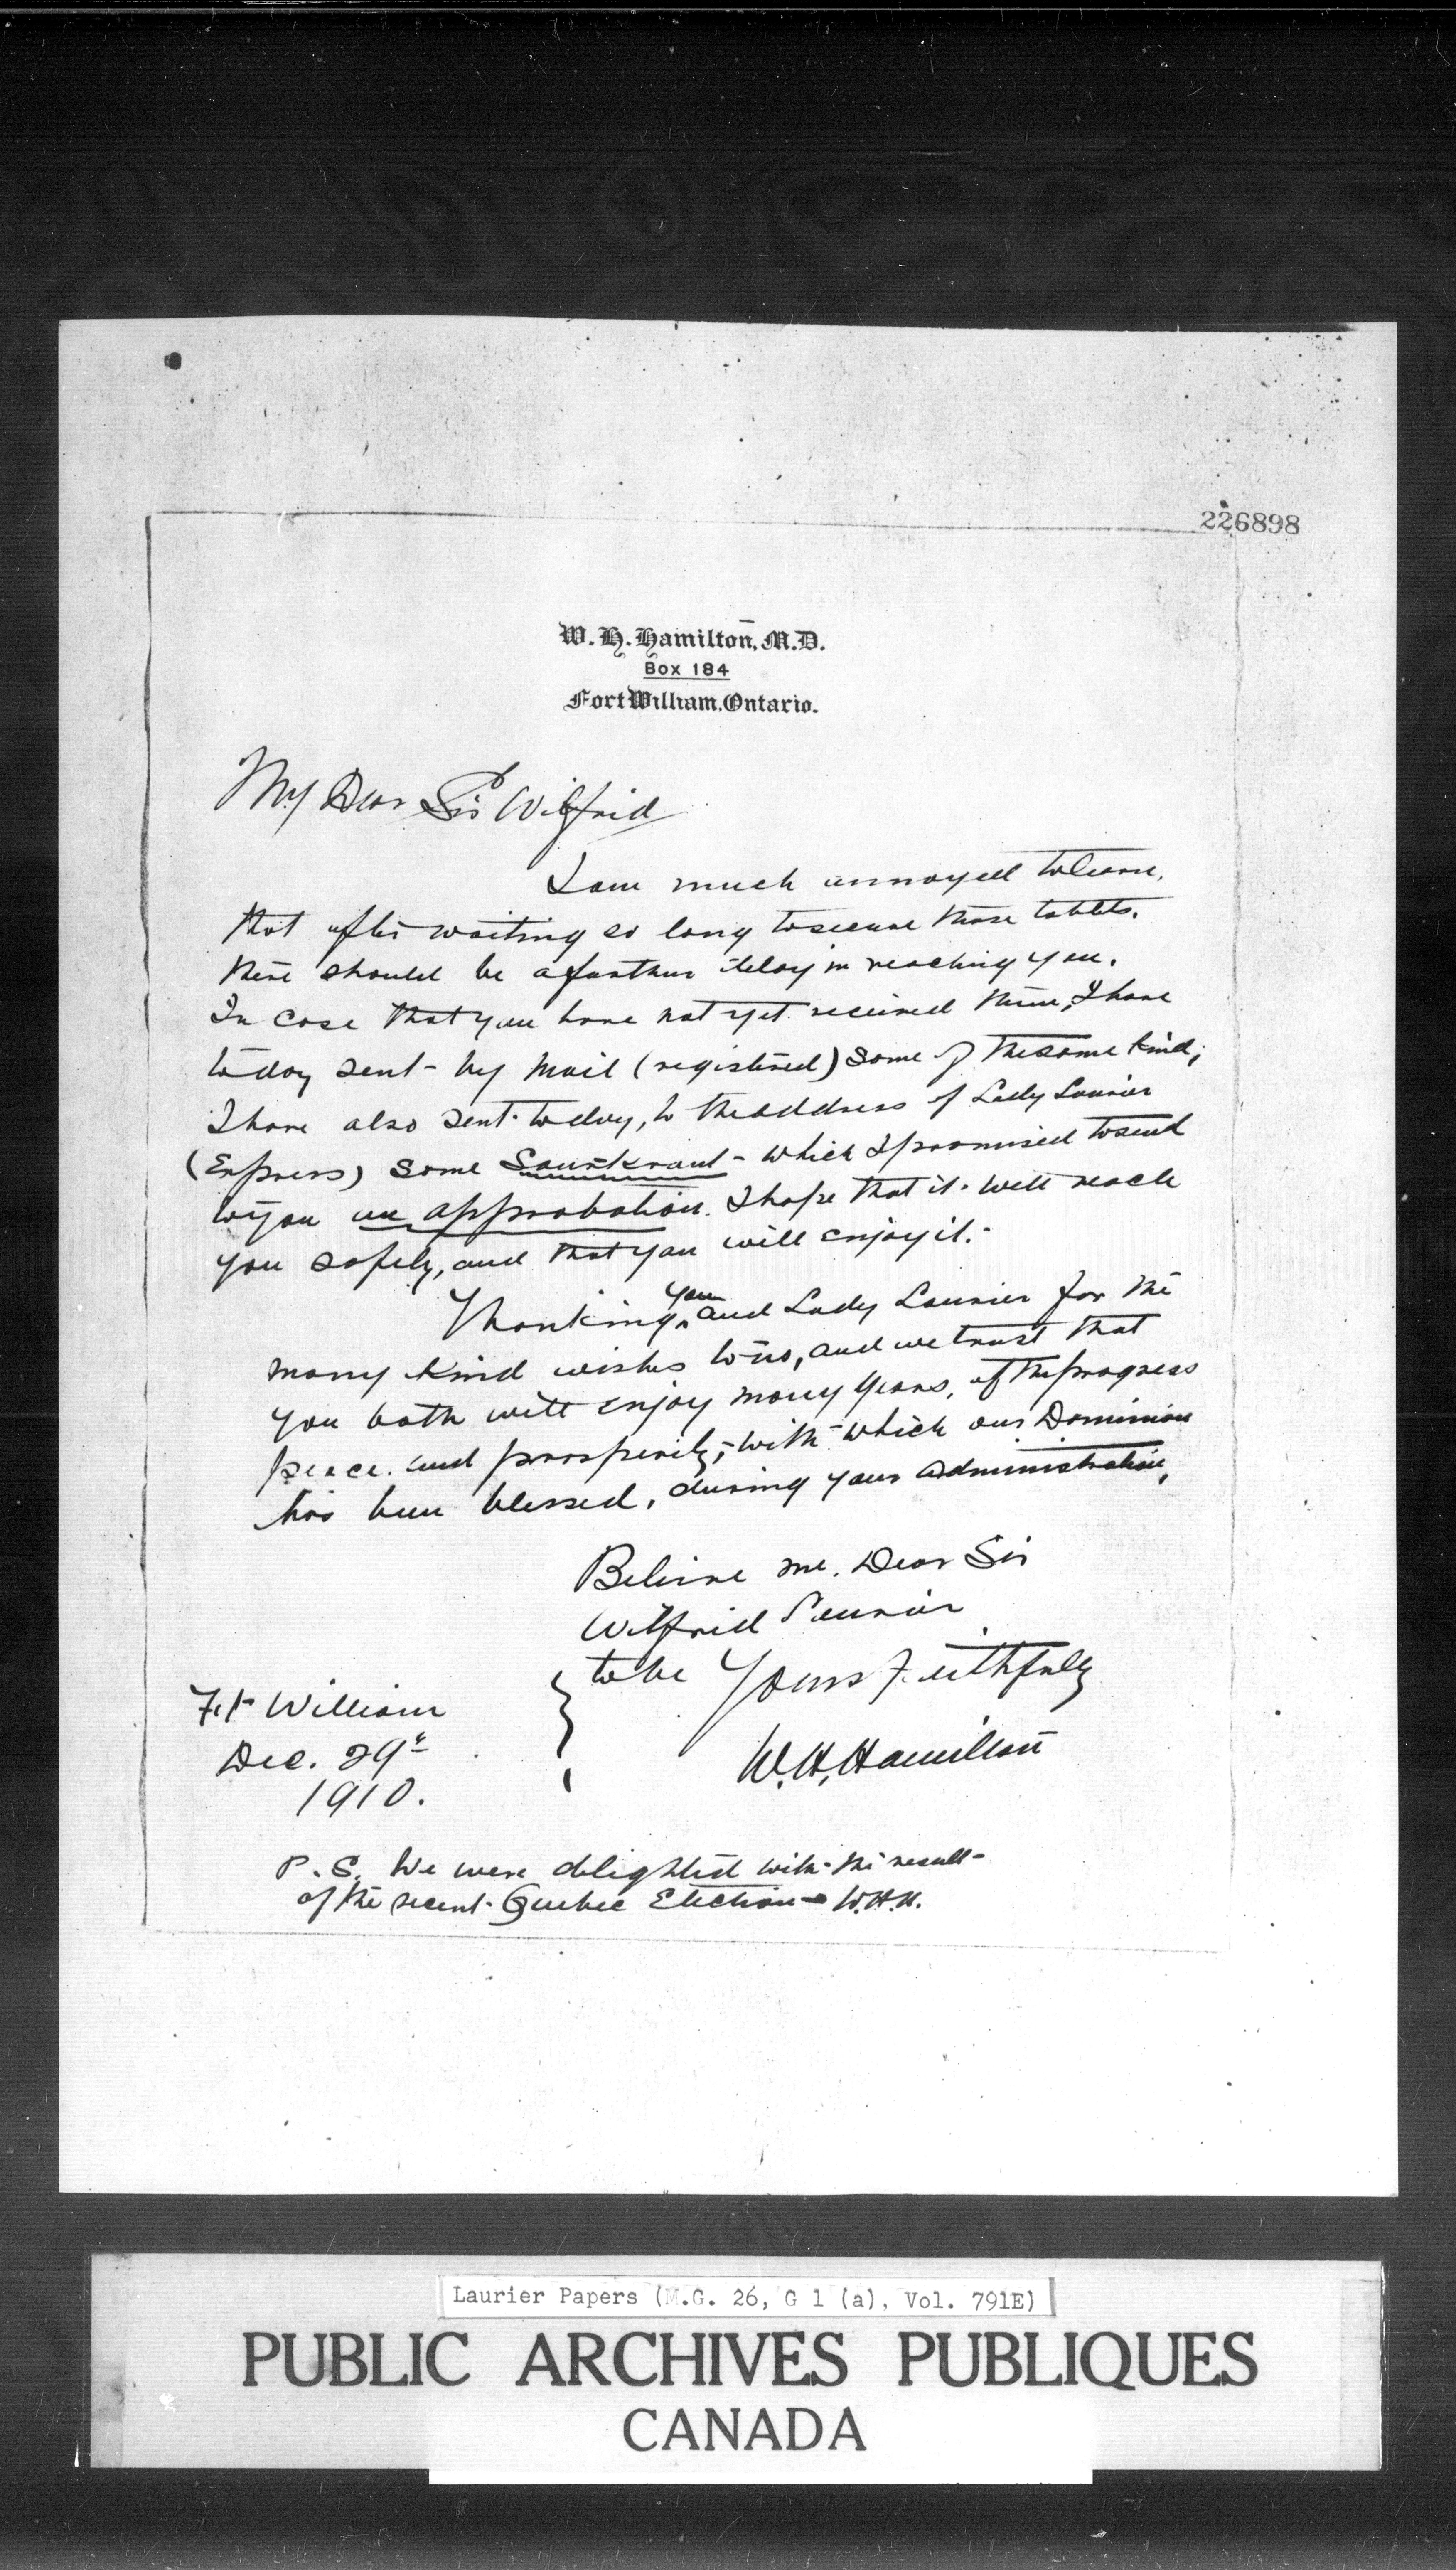 226898
W. H. Hamilton, M.D.
Box 184
Fort William, Ontario.
My Dear Sir Wilfrid
I am much annoyed to learn,
that after waiting so long to secure those tablets.
there should be a further delay in reaching you.
In case that you have not yet received them, I have
today sent - by mail (registered) some of the same kind;
I have also sent to day, to the address of Lady Laurier
(Express) some Sourkraut - which I promised to send
to you on approbation. I hope that it will reach
you safely, and that you will enjoy it. -
Thanking you and Lady Laurier for the
many kind wishes to us, and we trust that
you both will enjoy many years, of the progress
peace and prosperity, with which our Dominion
has been blessed, during your administration,
Believe me. Dear Sir
Wilfrid Laurier
to be Yours Faithfully
W. H. Hamilton
Ft William
Dec. 29"
1910.
P. S. We were delighted with the result
of the recent Quebec Election - W.H.H.
Laurier Papers (M.G. 26, G 1 (a), Vol. 791E)
PUBLIC ARCHIVES PUBLIQUES
CANADA